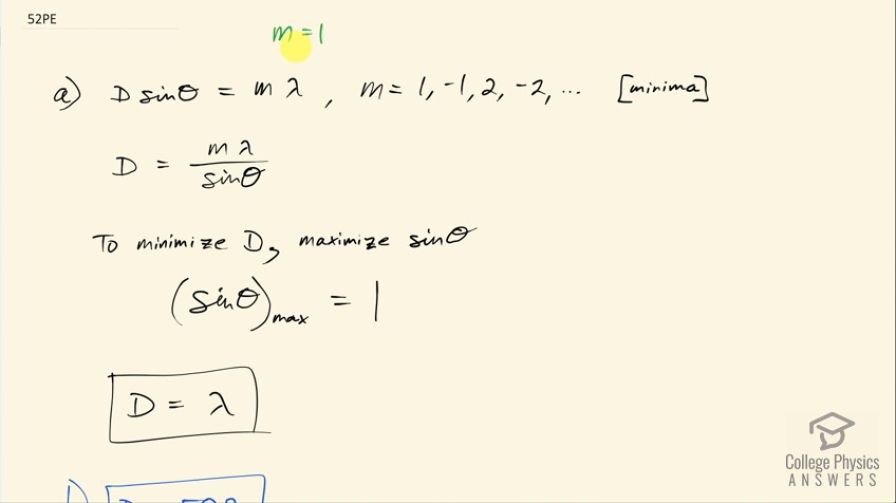 52PE
m = 1
a) D sinθ = m λ , m = 1, -1, 2, -2, ... [minima]
D = mλ / sinθ
To minimize D, maximize sinθ
(sinθ)max = 1
D = λ
College Physics
ANSWERS